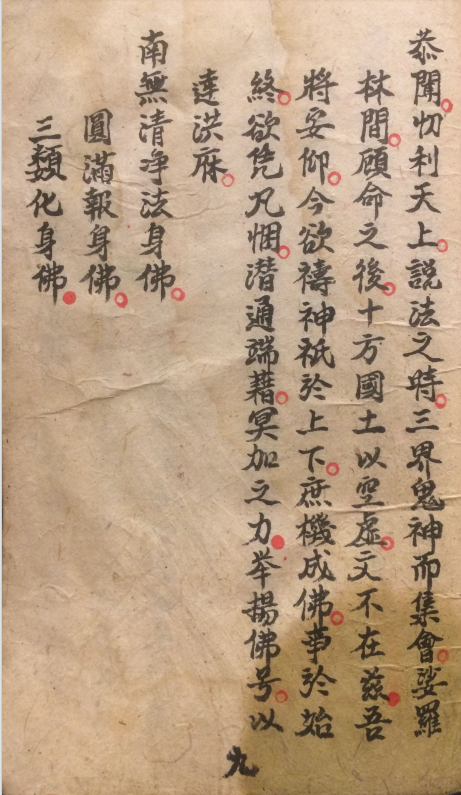 恭聞忉利天上説法之時三界鬼神而集會娑羅
林間顧命之後十方國土以空虛文不在兹吾
將安仰今欲禱神祇於上下庶機成佛事於始
終欲凭凡悃潜通端藉冥加之力举揚佛号以
達洪庥
南無清净法身佛
圓滿報身佛
三類化身佛
九